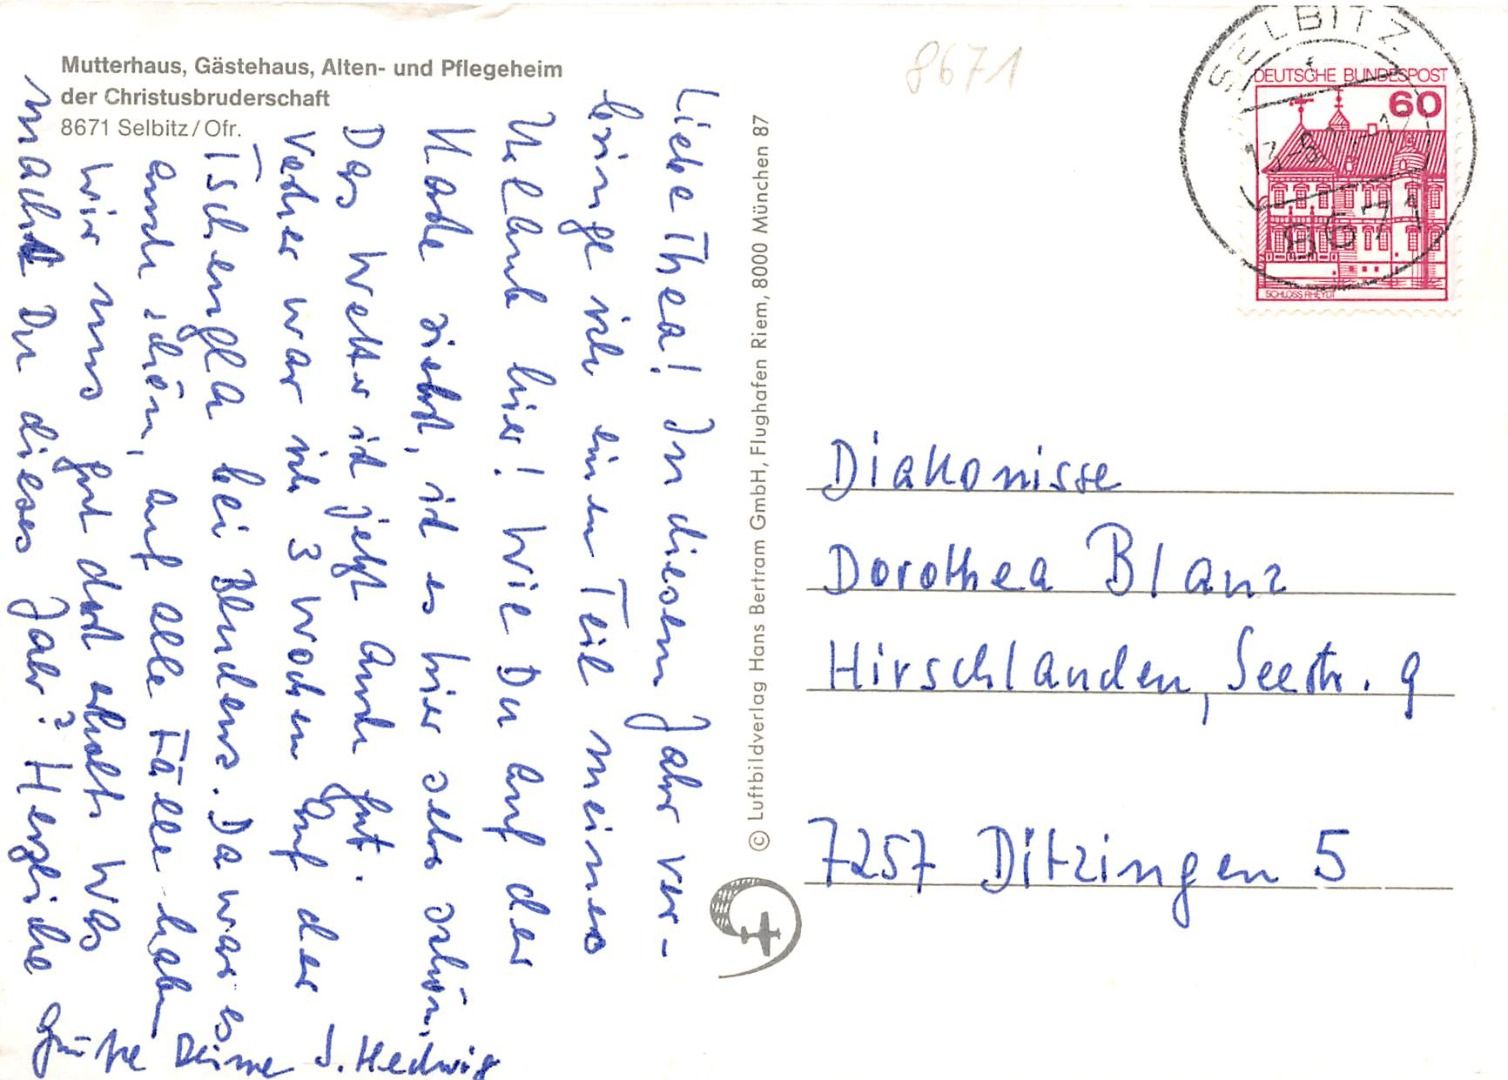 Mutterhaus, Gästehaus, Alten- und Pflegeheim
der Christusbruderschaft
8671 Selbitz/Ofr.
8671
SELBITZ
13.-8.
8671
DEUTSCHE BUNDESPOST
60
SCHLOSS RHEYDT
Liebe Thea! In diesem Jahr ver-
bringe ich einen Teil meines
Urlaub hier! Wie Du auf der
Karte siehst, ist es hier sehr schön.
Das Wetter ist jetzt auch gut.
Vorher war ich 3 Wochen auf der
Tschengla bei Bludenz. Da war es
auch schön, auf alle Fälle haben
wir uns gut dort erholt. Was
machst Du dieses Jahr? Herzliche
Grüße Deine S. Hedwig
© Luftbildverlag Hans Bertram GmbH, Flughafen Riem, 8000 München 87
Diakonisse
Dorothea Blanz
Hirschlanden, Seestr. 9
7257 Ditzingen 5